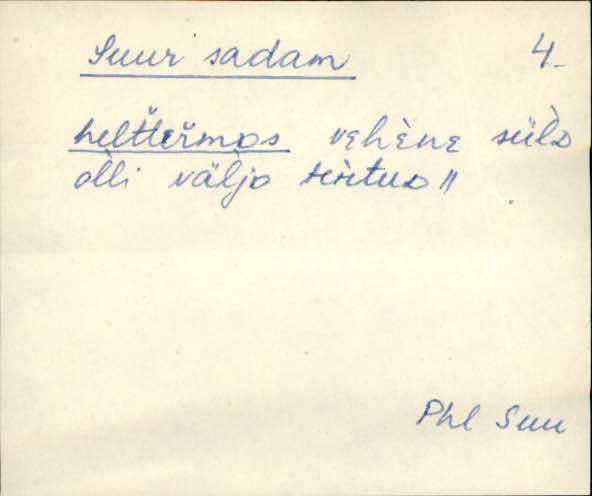 Suur sadam 4.
helttermos vehène siild
olli väljo tèitud "
Phl Suu